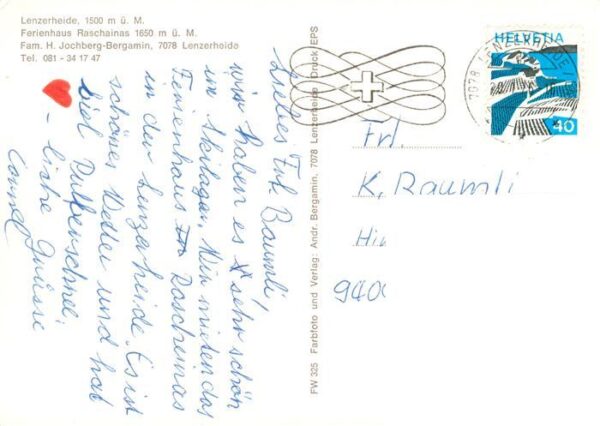 Lenzerheide, 1500 m ü. M.
Ferienhaus Raschainas 1650 m ü. M.
Fam. H. Jochberg-Bergamin, 7078 Lenzerheide
Tel. 081 - 34 17 47
Liebes Frl. Baumli,
wir haben es sehr schön
im Skilager. Wir mieten das
Ferienhaus Raschainas
in der Lenzerheide. Es ist
schönes Wetter und hat
viel Pulverschnee.
- liebe Grüsse
FW 325 Farbfoto und Verlag: Andr. Bergamin, 7078 Lenzerheide Druck/EPS
HELVETIA
40
7078 LENZERHEIDE
Frl.
K. Raumli
Hi
940